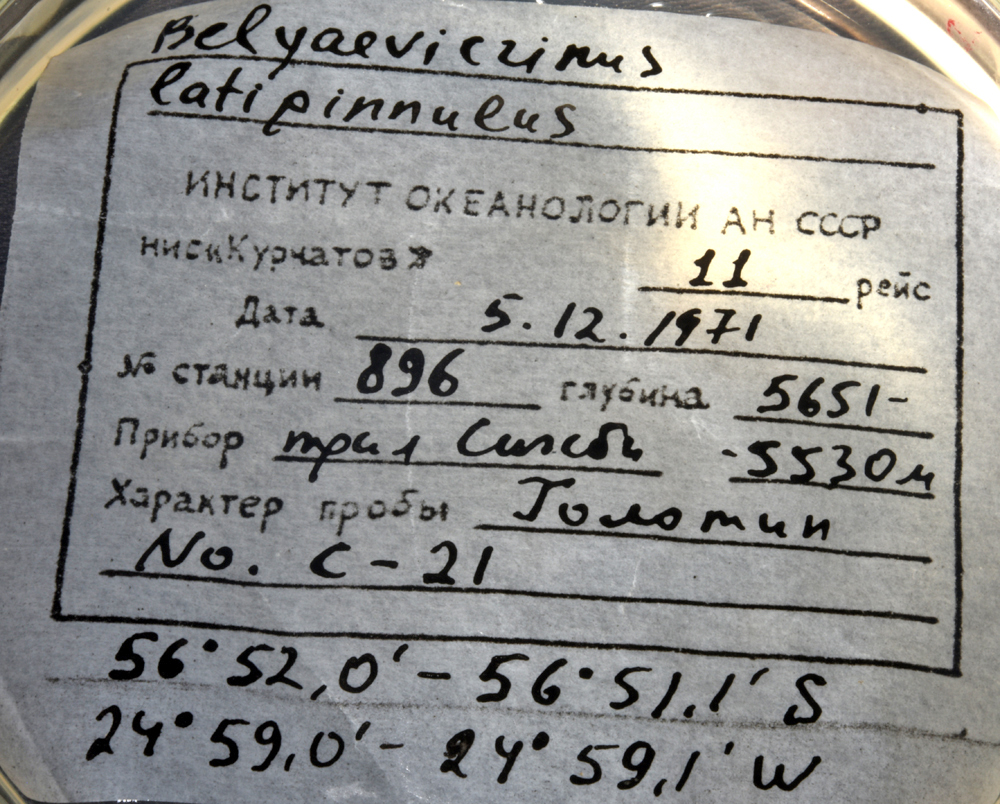 Belyaevicrinus
latipinnulus
ИНСТИТУТ ОКЕАНОЛОГИИ АН СССР
нис «Курчатов» 11 рейс
Дата 5.12.1971
№ станции 896 глубина 5651-
Прибор трал Сигсби -5530 м
Характер пробы Голотип
No. C-21
56°52,0' - 56°51,1' S
24°59,0' - 24°59,1' W